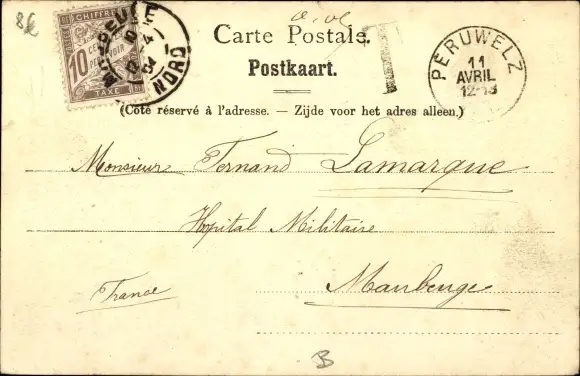 8€
CHIFFRE
10 CENTIMES
A PERCEVOIR
TAXE
MAUBEUGE
NORD
Carte Postale.
Postkaart.
T
PERUWELZ
11
AVRIL
(Côté réservé à l'adresse. — Zijde voor het adres alleen.)
Monsieur Fernand Lamarque
Hopital Militaire
Maubeuge
France
B